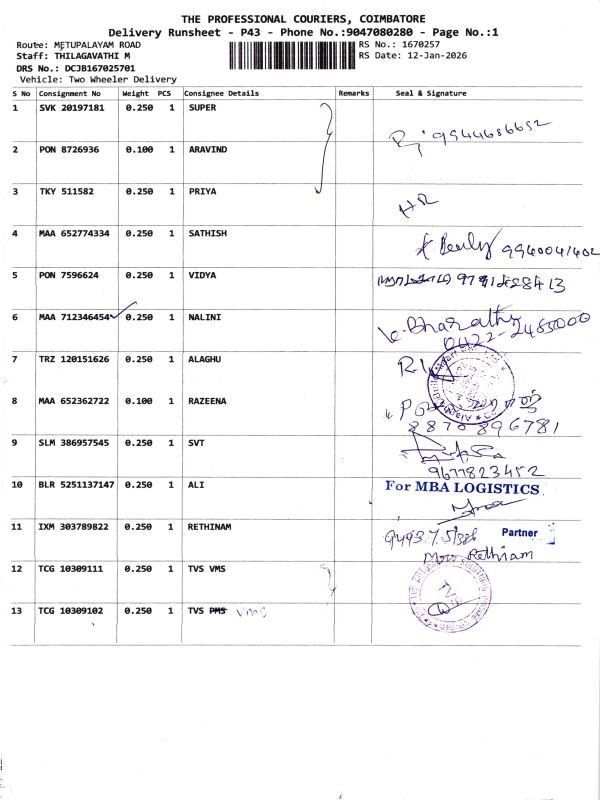 THE PROFESSIONAL COURIERS, COIMBATORE
Delivery Runsheet - P43 - Phone No.:9047080280 - Page No.:1
Route: METUPALAYAM ROAD
RS No.: 1670257
Staff: THILAGAVATHI M
RS Date: 12-Jan-2026
DRS No.: DCJB167025701
Vehicle: Two Wheeler Delivery
S No Consignment No Weight PCS Consignee Details Remarks Seal & Signature
1 SVK 20197181 0.250 1 SUPER
9944686652
2 PON 8726936 0.100 1 ARAVIND
3 TKY 511582 0.250 1 PRIYA
HR
4 MAA 652774334 0.250 1 SATHISH
5 PON 7596624 0.250 1 VIDYA
6 MAA 712346454 0.250 1 NALINI
Bharathi
0422-2485000
7 TRZ 120151626 0.250 1 ALAGHU
8 MAA 652362722 0.100 1 RAZEENA
8870896781
9 SLM 386957545 0.250 1 SVT
9677823452
10 BLR 5251137147 0.250 1 ALI
For MBA LOGISTICS
11 IXM 303789822 0.250 1 RETHINAM
Partner
Rethinam
12 TCG 10309111 0.250 1 TVS VMS
13 TCG 10309102 0.250 1 TVS PMS VMS
TVS